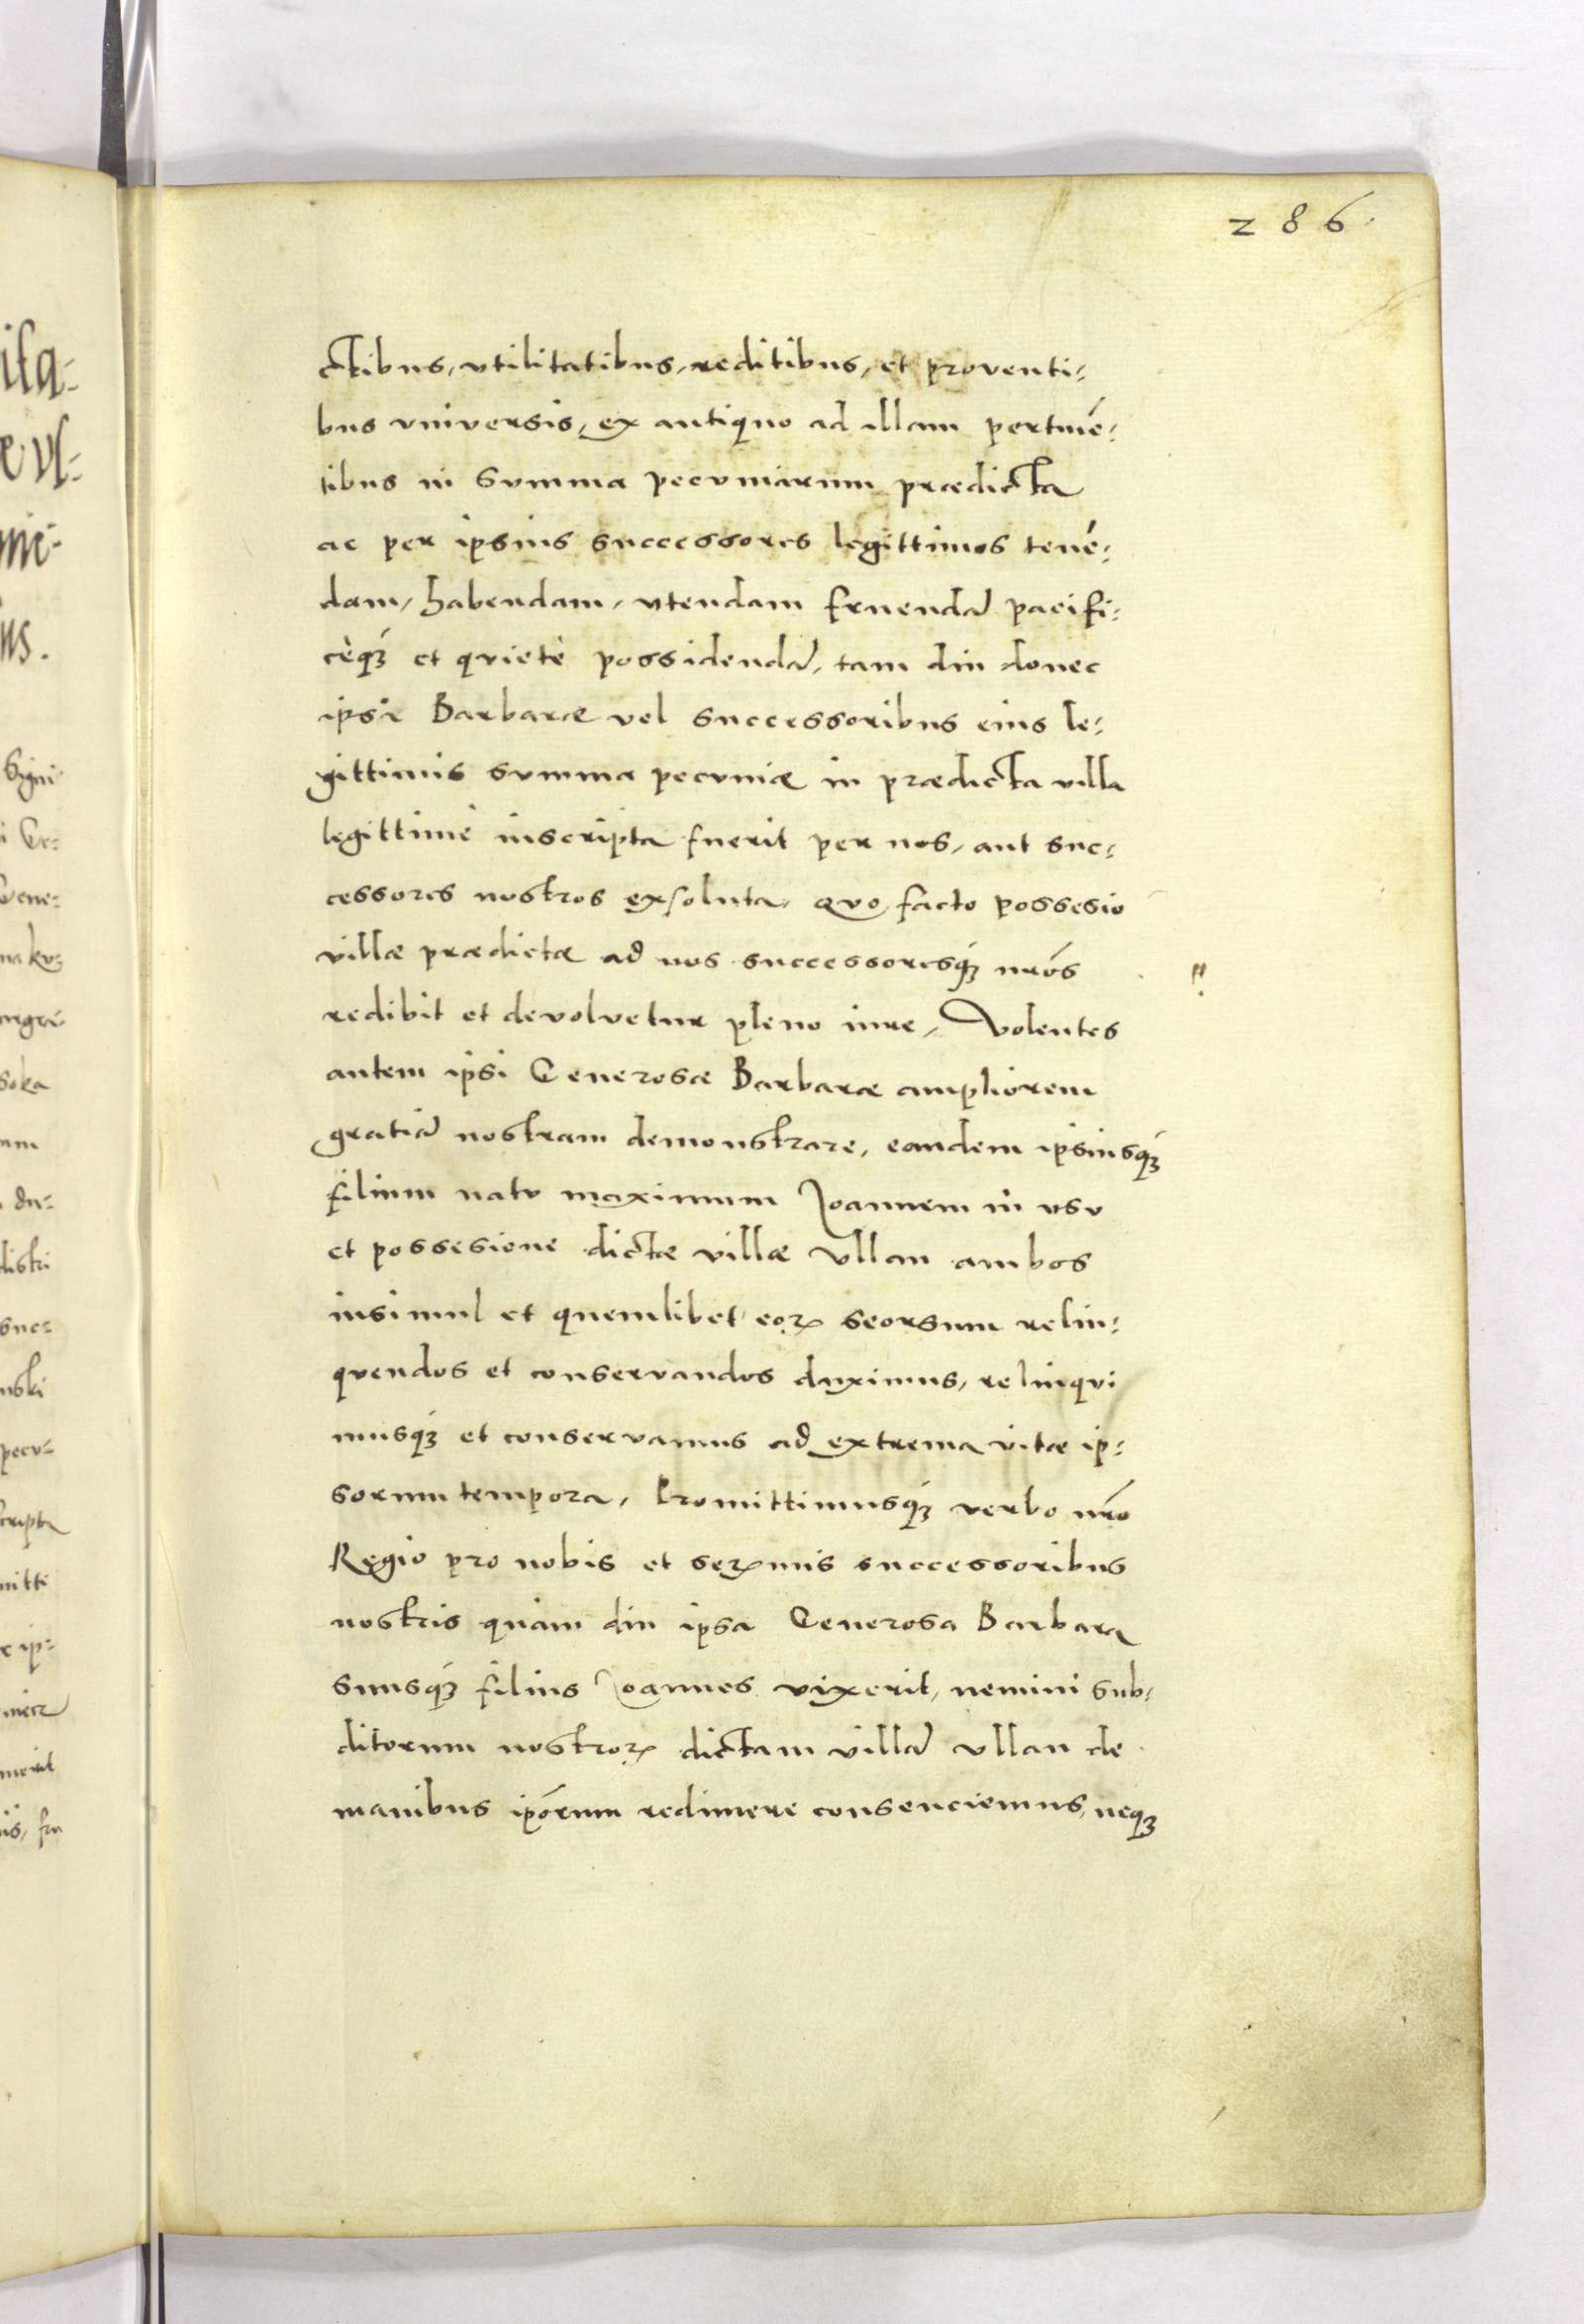 286.
ctibus, vtilitatibus, reditibus, et proventi-
bus vniversis, ex antiquo ad illam pertinē-
tibus in summa pecuniarum prædicta
ac per ipsius successores legittimos tenē-
dam, habendam, vtendam fruendā pacifi-
cèq́ꝫ et quietè possidendā, tam diu donec
ipsi Barbaræ vel successoribus eius le-
gittimis summa pecuniæ in prædicta villa
legittimè inscripta fuerit per nos, aut suc-
cessores nostros exsoluta, quo facto possesio
villæ prædictæ ad nos successoresq́ꝫ nr̃os
redibit et devolvetur pleno iure, Volentes
autem ipsi Generosæ Barbaræ ampliorem
gratiā nostram demonstrare, eandem ipsiusq́ꝫ
filium natu maximum Joannem in vsu
et possesione dictæ villæ Vllan ambos
insimul et quemlibet eoꝝ seorsum relin-
quendos et conservandos duximus, relinqui
musq́ꝫ et conservamus ad extrema vitæ ip-
sorum tempora, Promittimusq́ꝫ verbo nr̃o
Regio pro nobis et seꝝmis successoribus
nostris quàm diu ipsa Generosa Barbara
suusq́ꝫ filius Joannes vixerit, nemini sub-
ditorum nostroꝝ dictam villā Vllan de
manibus ip̄orum redimere consenciemus, neqꝫ